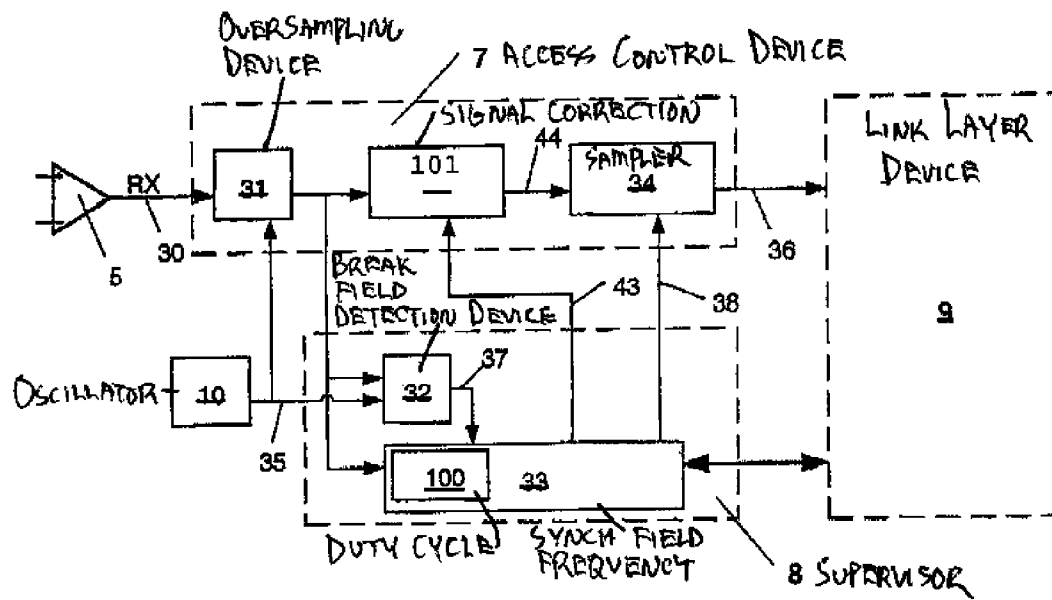 OVERSAMPLING
DEVICE
7 ACCESS CONTROL DEVICE
SIGNAL CORRECTION
44
LINK LAYER
DEVICE
RX
31
101
SAMPLER
34
5
30
36
BREAK
FIELD
DETECTION DEVICE
43
38
9
OSCILLATOR
10
32
37
35
100
33
DUTY CYCLE
SYNCH FIELD
FREQUENCY
8 SUPERVISOR